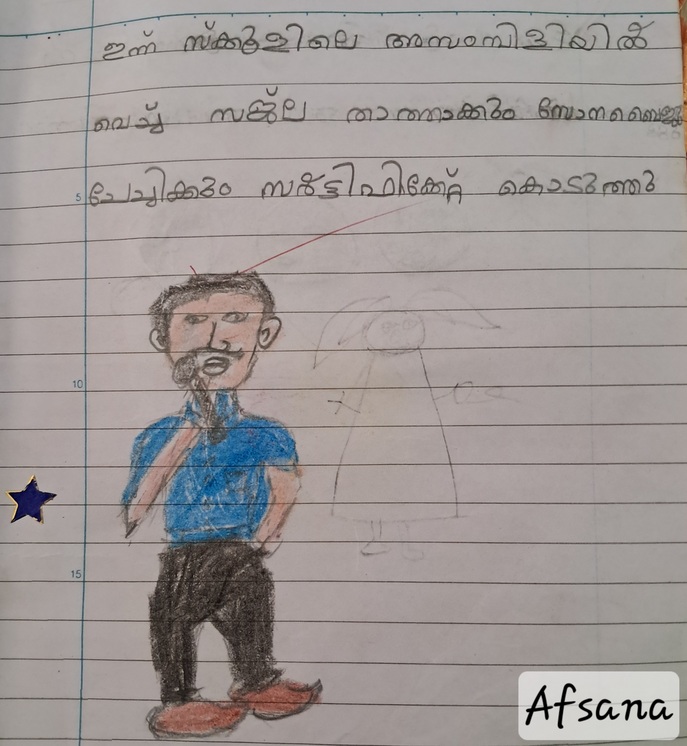 ഇന്ന് സ്ക്കൂളിലെ അസംബിളിയിൽ
വെച്ച് സജ്ല താത്താക്കും സോന ബൈജു
ചേച്ചിക്കും സർട്ടിഫിക്കേറ്റ് കൊടുത്തു
5
10
15
Afsana